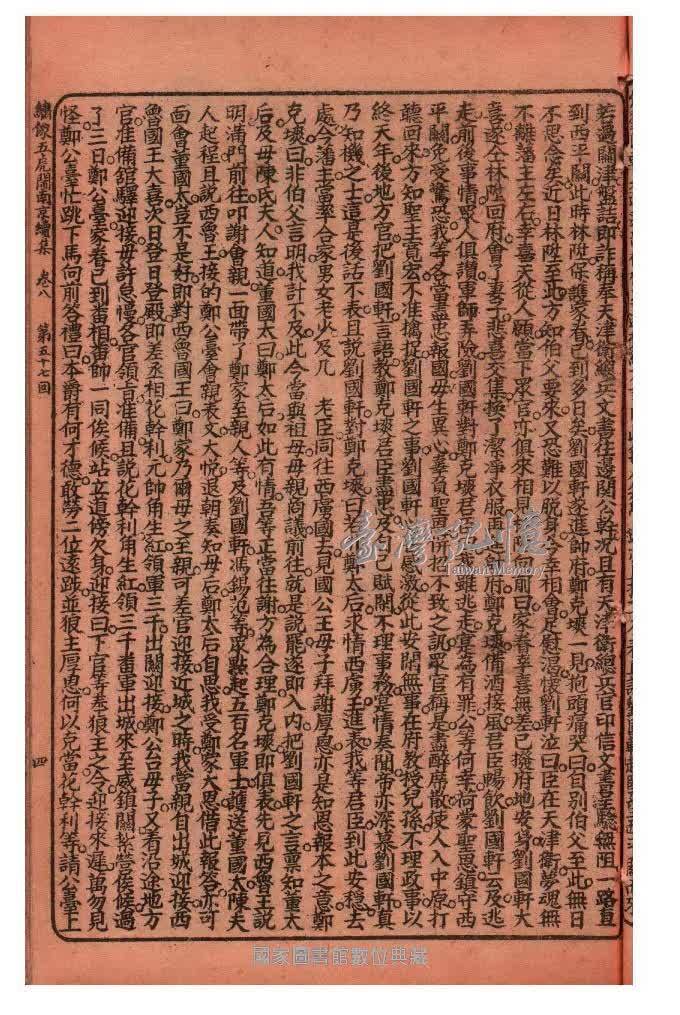 若過關津盤詰即詐稱奉天津衛總兵文書往邊關公幹况且有天津衛總兵官印信文書呈驗無阻一路直
到西平關此時林陞保護家眷已到多日矣劉國軒遂進帥府鄭克塽一見抱頭痛哭曰自別伯父至此無日
不思念矣近日林陞至此方知伯父要來又恐難以脫身今幸相會足慰渴懷劉軒泣曰臣在天津衛夢魂無
不離藩主左右幸喜天從人願當下眾官亦俱來相見
前曰家眷幸喜無恙已擬府地安身劉國軒大
喜遂仝林陞回府會了妻子悲喜交集換了潔淨衣服再進
府鄭克塽備酒接風君臣暢飲劉國軒云及逃
走前後事情眾人俱讚軍師弄險劉國軒對鄭克塽
君臣
雖逃走實為有罪公等何幸何蒙聖恩鎮守西
平關免受驚恐我等各當盡忠報國毋生異心辜負聖恩
招不致之訊眾官稱是盡醉席散使人入中原打
聽回來方知聖主寬宏不准擒捉劉國軒之事劉國軒
感激從此安閒無事在府教授兒孫不理政事以
終天年後地方官把劉國軒言語教鄭克塽君臣盡忠及自己賦閒不理事務實情奏聞帝亦深慕劉國軒真
乃知機之士這是後話不表且說劉國軒對鄭克塽曰若
鄭太后求情西虜王進表我等君臣到此安穩去
處今藩主當率合家男女老少及几 老臣同往西虜國去見國公王母子拜謝厚恩亦是知恩報本之意鄭
克塽曰非伯父言明我計不及此今當與祖母母親商議前往就是說罷遂即入內把劉國軒之言稟知董太
后及母陳氏夫人知道董國太曰鄭太后如此有情吾等正當往謝方為合理鄭克塽即俱表先見西魯王說
明滿門前往叩謝會親一面帶了鄭家至親人等及劉國軒馮錫范等眾點起五百名軍士護送董國太陳夫
人起程且說西魯王接的鄭公臺會親表文大悅退朝奏知母后鄭太后自思我受鄭家大恩借此報答亦可
面會董國太豈不是好即對西魯國王曰鄭家乃爾母之至親可差官迎接近城之時我當親自出城迎接西
魯國王大喜次日登日登殿即差丞相花幹利元帥角生紅領軍三千出關迎接鄭公台母子又着沿途地方
官准備舘驛迎接毋許怠慢各官領旨准備且說花幹利角生紅領三千畨軍出城來至威鎮關紮營俟候過
了三日鄭公臺家眷已到畨相畨帥一同俟候站立道傍欠身迎接曰下官等奉狼主之令迎接來遲萬勿見
怪鄭公臺忙跳下馬向前答禮曰本爵有何才德敢勞二位遠跡並狼主厚恩何以克當花幹利等請公臺上
繡像五虎鬧南京續集 卷八 第五十七回
四
臺灣記憶
Taiwan Memory
國家圖書館數位典藏